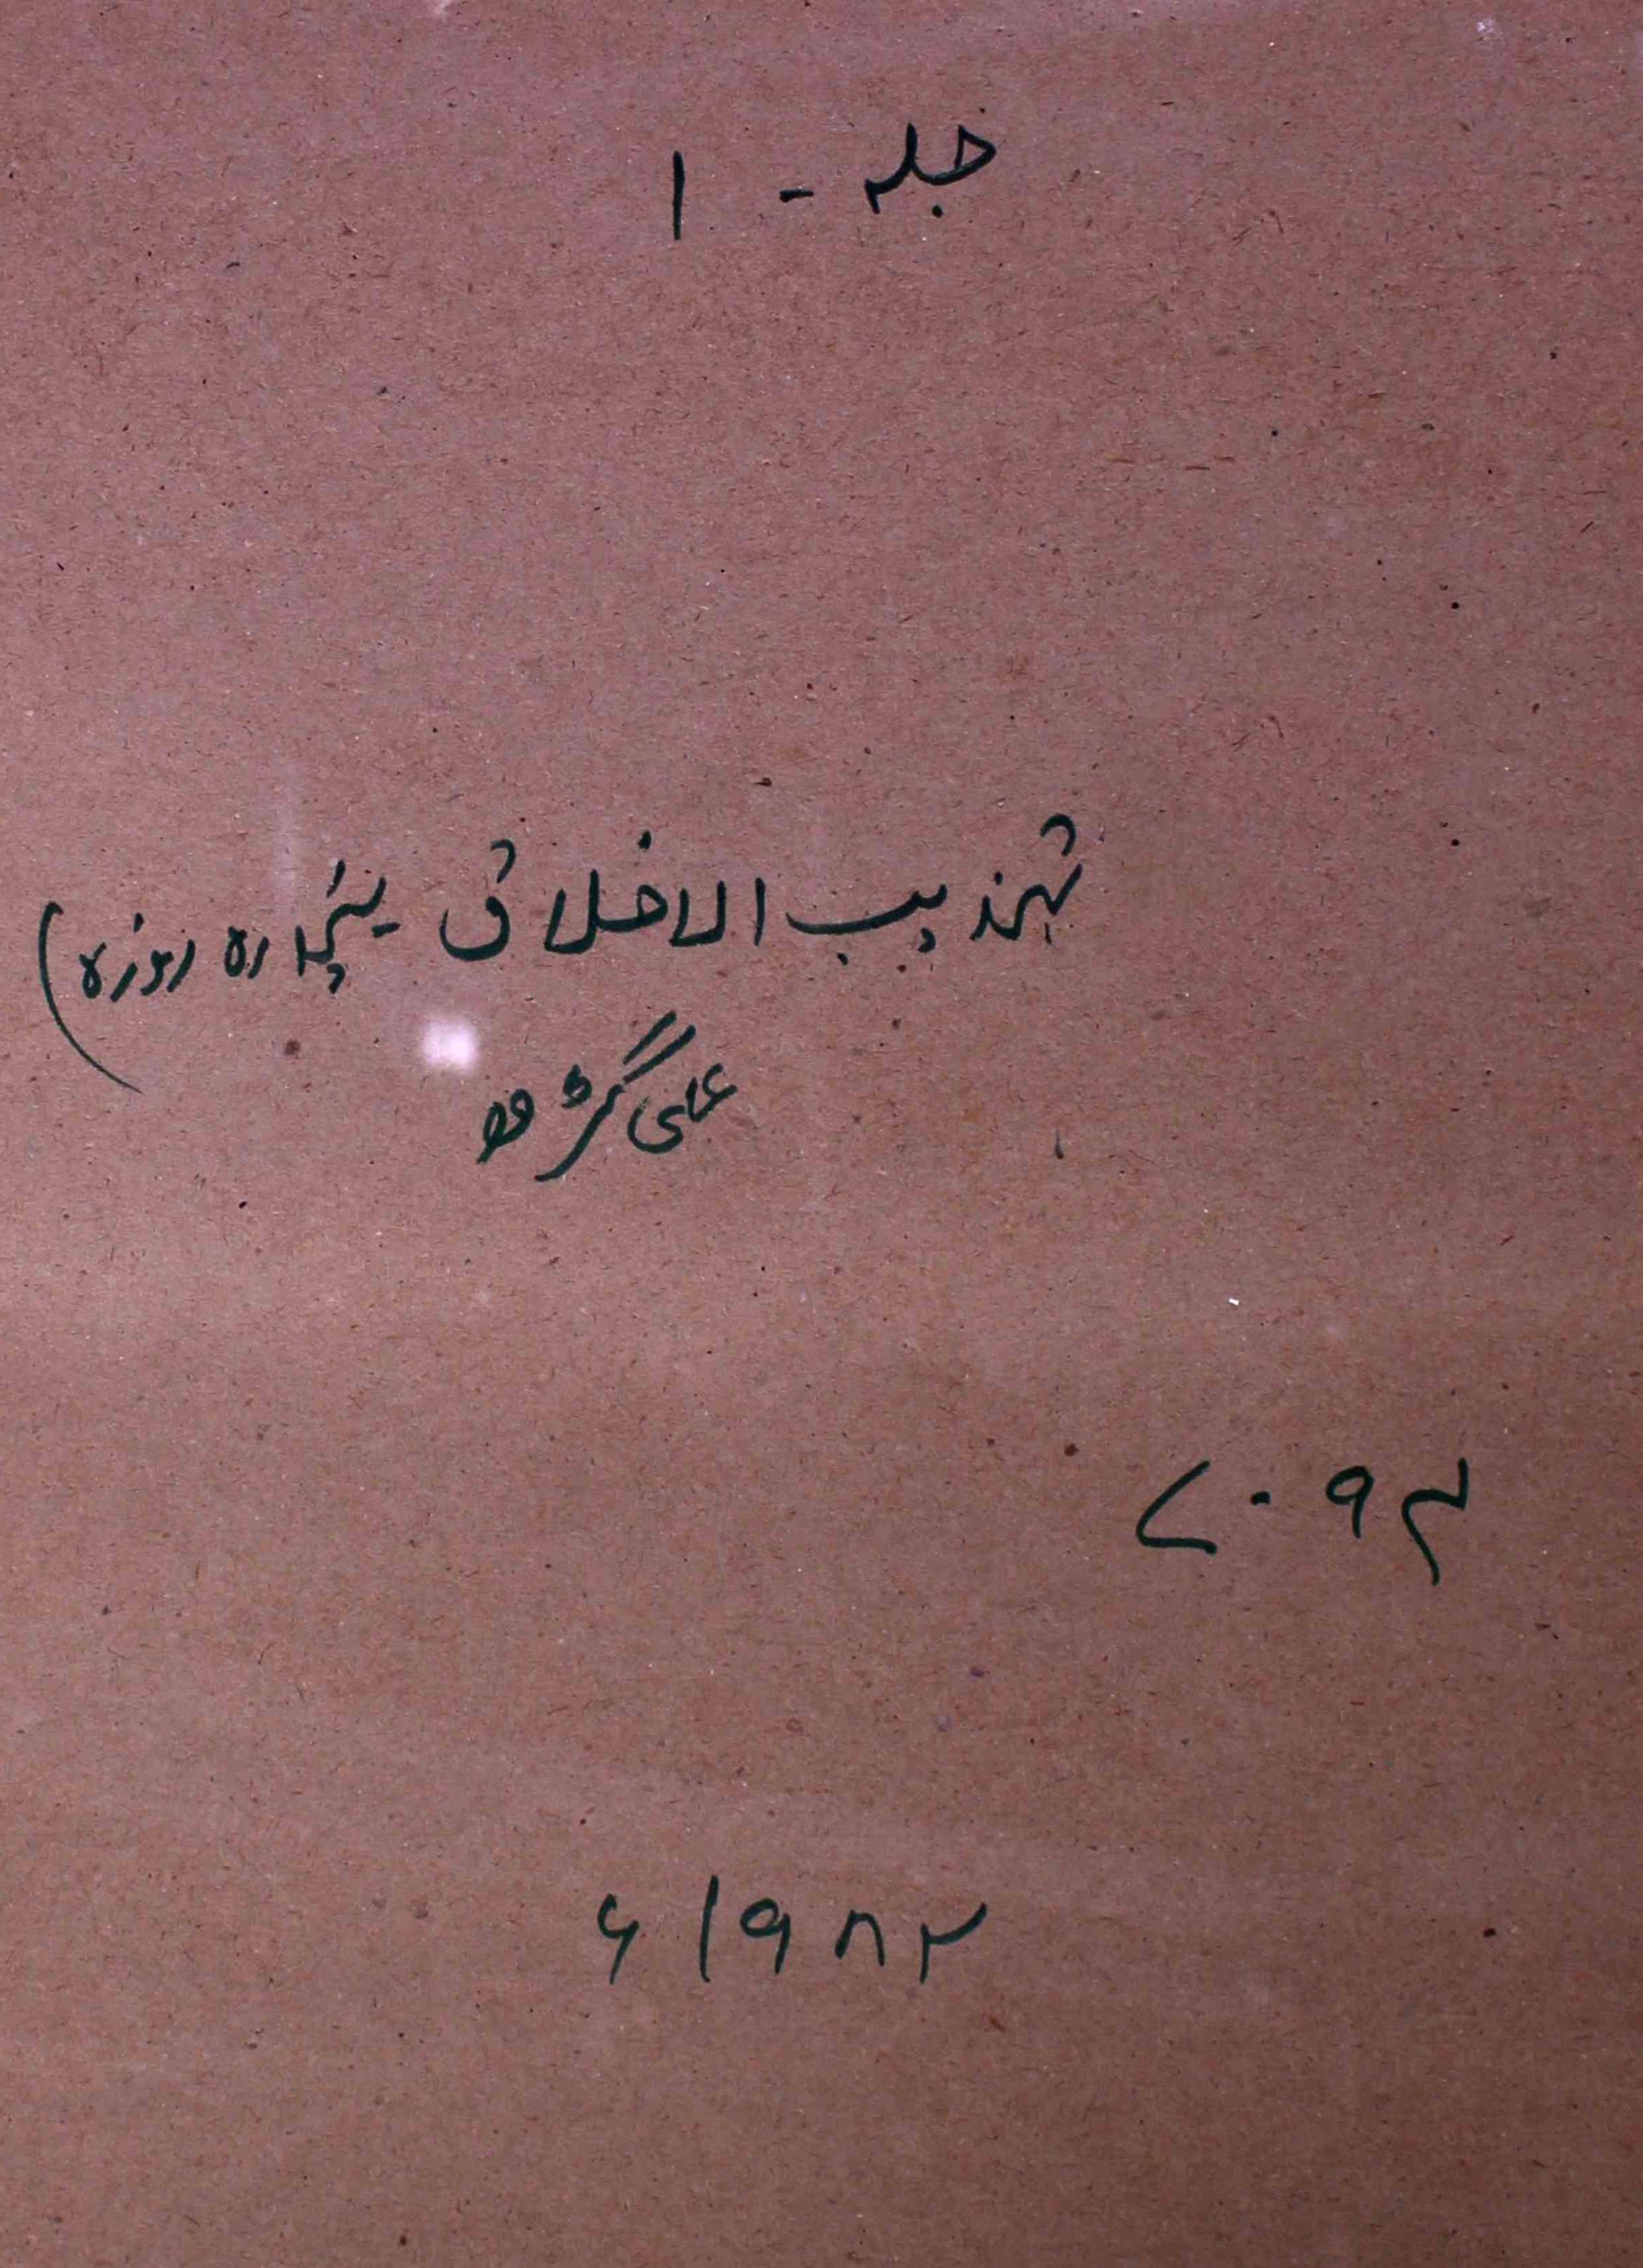 جلد - ۱
تہذیب الاخلاق پندرہ روزہ)
علی گڑھ
۷۰۹۴
۱۹۸۲ء